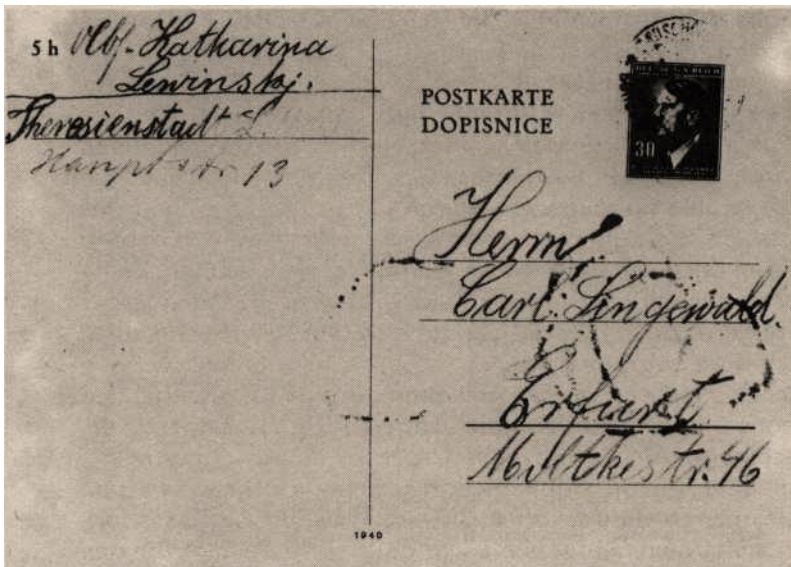 5 h Abf. Katharina
Lewinskj.
Theresienstadt L.
Hauptstr 13
POSTKARTE
DOPISNICE
30
Herrn
Carl Lingewald.
Erfurt
Moltkestr. 46
1940